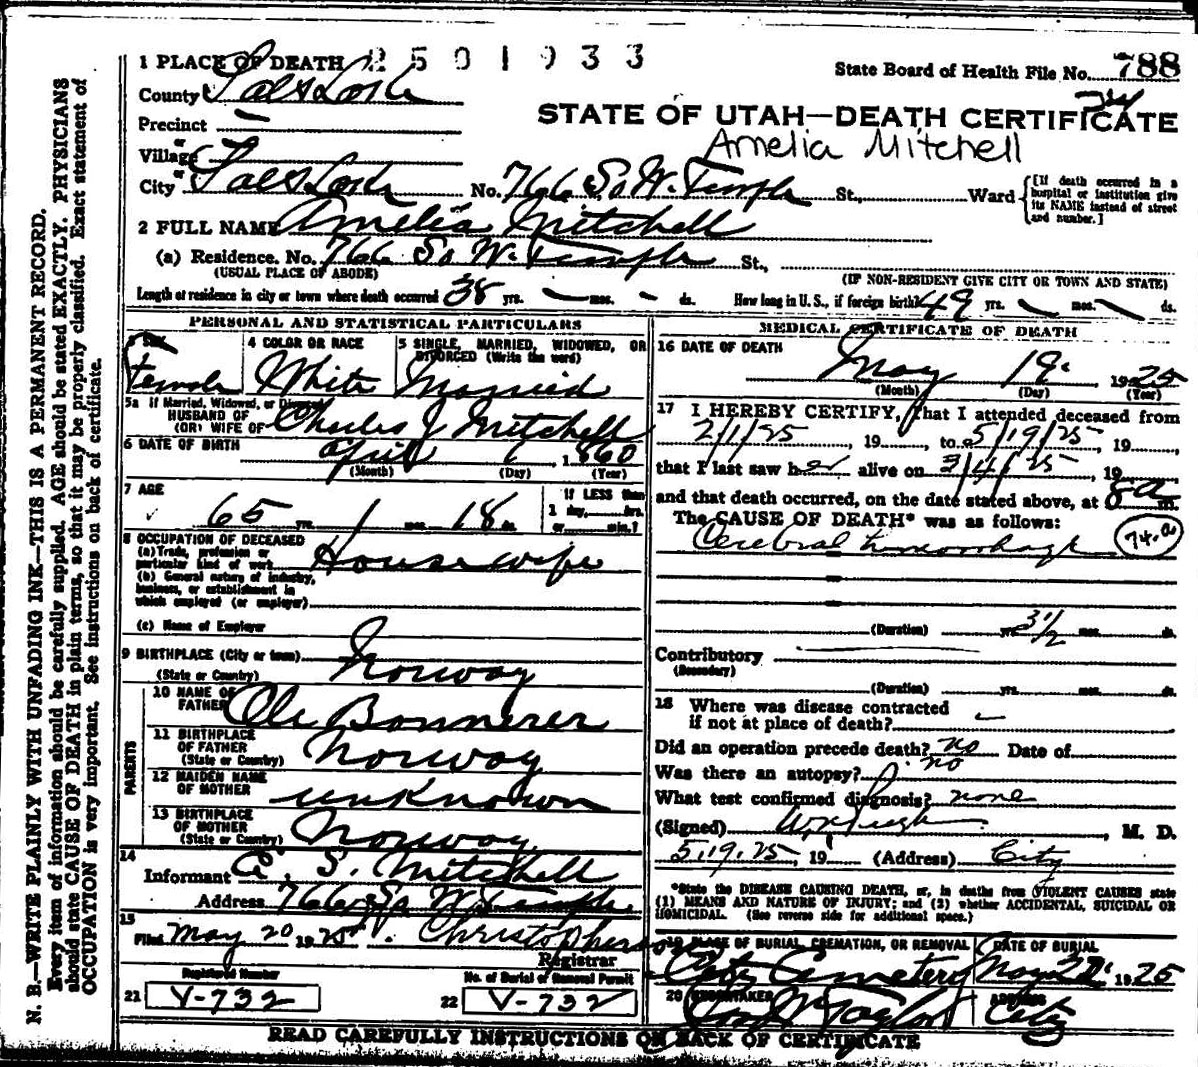 1 PLACE OF DEATH 2501933
State Board of Health File No. 788
County Salt Lake
24
STATE OF UTAH—DEATH CERTIFICATE
Precinct —
Amelia Mitchell
or
Village
or
City Salt Lake No. 766 So W. Temple St., Ward {[If death occurred in a hospital or institution give its NAME instead of street and number.]
2 FULL NAME Amelia Mitchell
(a) Residence. No. 766 So W. Temple St.,
(USUAL PLACE OF ABODE) (IF NON-RESIDENT GIVE CITY OR TOWN AND STATE)
Length of residence in city or town where death occurred 38 yrs. — mos. - ds. How long in U. S., if foreign birth? 49 yrs. — mos. — ds.
PERSONAL AND STATISTICAL PARTICULARS
3 SEX 4 COLOR OR RACE 5 SINGLE, MARRIED, WIDOWED, OR DIVORCED (Write the word)
Female White Married
5a If Married, Widowed, or Divorced
HUSBAND OF
(OR) WIFE OF Charles J Mitchell
6 DATE OF BIRTH April 1 1860
(Month) (Day) (Year)
7 AGE If LESS than
65 yrs. 1 mos. 18 ds. 1 day, hrs.
or min.?
8 OCCUPATION OF DECEASED
(a) Trade, profession or
particular kind of work Housewife
(b) General nature of industry,
business, or establishment in
which employed (or employer)
(c) Name of Employer
9 BIRTHPLACE (City or town)
(State or Country) Norway
PARENTS
10 NAME OF
FATHER Ole Bonnerer
11 BIRTHPLACE
OF FATHER
(State or Country) Norway
12 MAIDEN NAME
OF MOTHER unknown
13 BIRTHPLACE
OF MOTHER
(State or Country) Norway
14
Informant C. S. Mitchell
Address 766 So W Temple
15
Filed May 20 1925 Christopherson
Registrar
Registered Number No. of Burial or Removal Permit
21 V-732 22 V-732
MEDICAL CERTIFICATE OF DEATH
16 DATE OF DEATH
May 19 1925
(Month) (Day) (Year)
17 I HEREBY CERTIFY, That I attended deceased from
2/1/25, 19, to 5/19/25, 19,
that I last saw her alive on 3/4/25, 19
and that death occurred, on the date stated above, at 8 a m.
The CAUSE OF DEATH* was as follows:
Cerebral hemorrhage 74.a
(Duration) yrs. 3 1/2 mos. ds.
Contributory
(Secondary)
(Duration) yrs. mos. ds.
18 Where was disease contracted
if not at place of death?
Did an operation precede death? no Date of
Was there an autopsy? no
What test confirmed diagnosis? none
(Signed), M. D.
5.19.25, 19 (Address) City
*State the DISEASE CAUSING DEATH, or, in deaths from VIOLENT CAUSES state
(1) MEANS AND NATURE OF INJURY; and (2) whether ACCIDENTAL, SUICIDAL OR
HOMICIDAL. (See reverse side for additional space.)
19 PLACE OF BURIAL, CREMATION, OR REMOVAL DATE OF BURIAL
City Cemetery May 22 1925
20 UNDERTAKER ADDRESS
Taylor City
READ CAREFULLY INSTRUCTIONS ON BACK OF CERTIFICATE
N. B.—WRITE PLAINLY WITH UNFADING INK—THIS IS A PERMANENT RECORD.
Every item of information should be carefully supplied. AGE should be stated EXACTLY. PHYSICIANS
should state CAUSE OF DEATH in plain terms, so that it may be properly classified. Exact statement of
OCCUPATION is very important. See instructions on back of certificate.